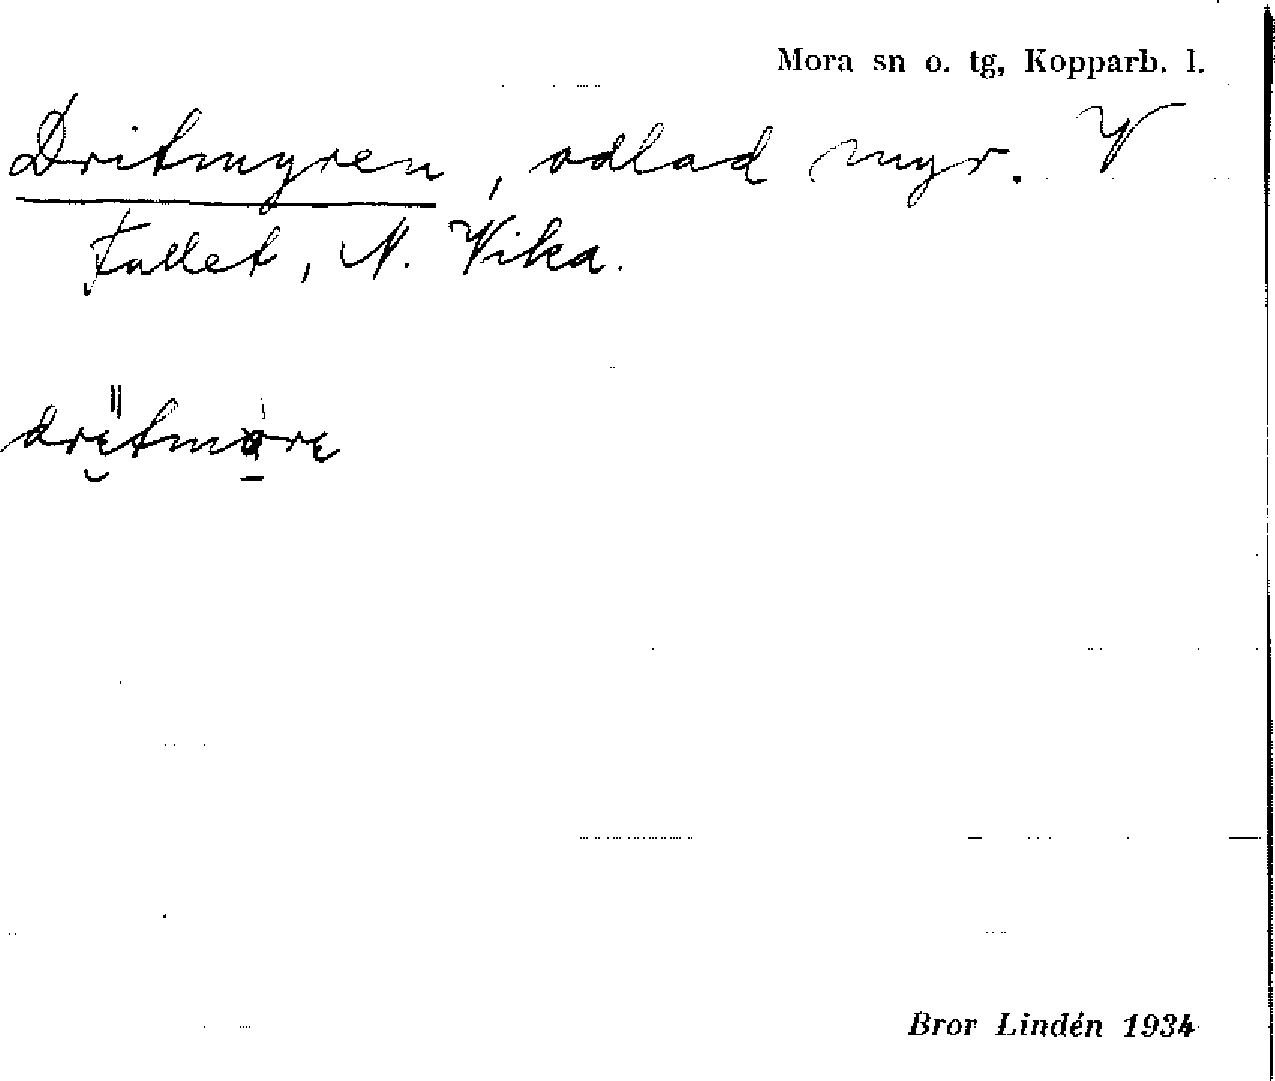 Mora sn o. tg, Kopparb. l.
Dritmyren, odlad myr. V
Fallet, N. Vika.
Bror Lindén 1934